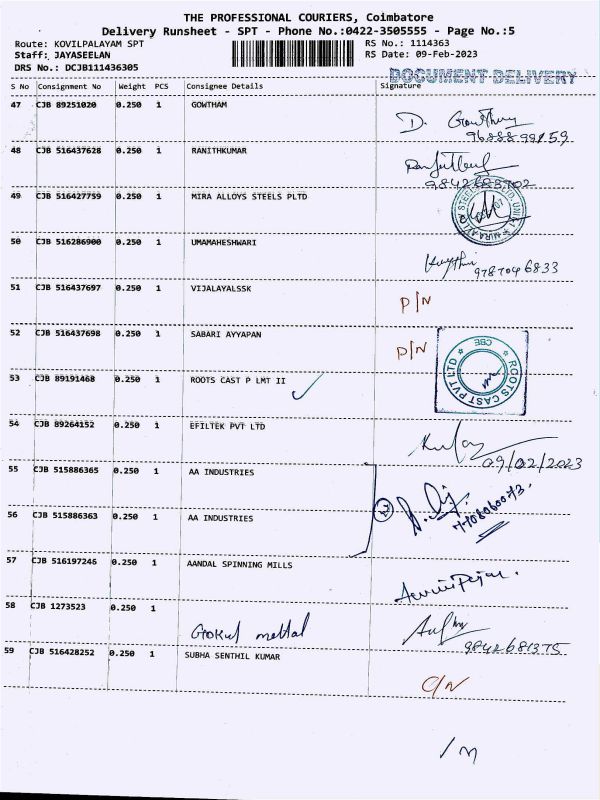 THE PROFESSIONAL COURIERS, Coimbatore
Delivery Runsheet - SPT - Phone No.:0422-3505555 - Page No.:5
Route: KOVILPALAYAM SPT RS No.: 1114363
Staff: JAYASEELAN RS Date: 09-Feb-2023
DRS No.: DCJB111436305
DOCUMENT DELIVERY
S No Consignment No Weight PCS Consignee Details Signature
47 CJB 89251020 0.250 1 GOWTHAM
D. Gowtham
48 CJB 516437628 0.250 1 RANITHKUMAR
9842683702
49 CJB 516427759 0.250 1 MIRA ALLOYS STEELS PLTD
50 CJB 516286900 0.250 1 UMAMAHESHWARI
9787046833
51 CJB 516437697 0.250 1 VIJALAYALSSK
P/N
52 CJB 516437698 0.250 1 SABARI AYYAPAN
P/N
53 CJB 89191468 0.250 1 ROOTS CAST P LMT II
ROOTS CAST PVT LTD
CBE
54 CJB 89264152 0.250 1 EFILTEK PVT LTD
09/02/2023
55 CJB 515886365 0.250 1 AA INDUSTRIES
56 CJB 515886363 0.250 1 AA INDUSTRIES
57 CJB 516197246 0.250 1 AANDAL SPINNING MILLS
58 CJB 1273523 0.250 1
Gokul mettal
9842681375
59 CJB 516428252 0.250 1 SUBHA SENTHIL KUMAR
C/N